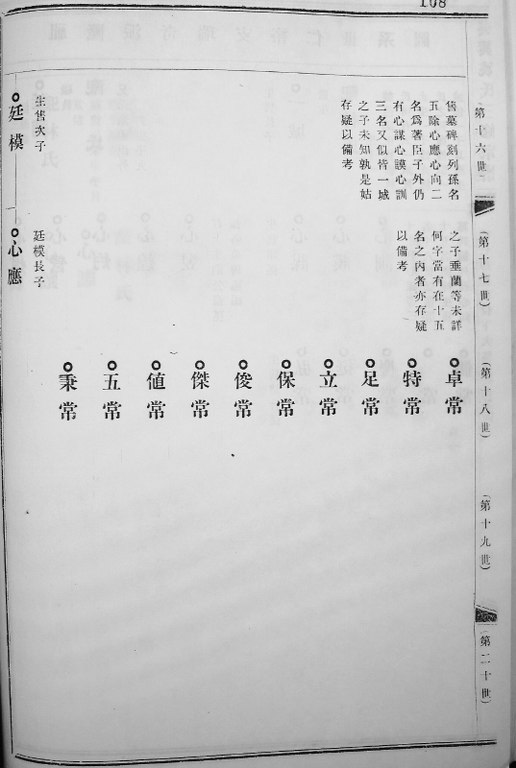 108
第十六世
(第十七世)
(第十八世)
(第十九世)
(第二十世)
售墓碑刻列孫名
五除心應心向二
名爲著臣子外仍
有心謀心謨心訓
三名又似皆一城
之子未知孰是姑
存疑以備考
之子垂蘭等未詳
何字當有在十五
名之內者亦存疑
以備考
卓常
特常
足常
立常
保常
俊常
傑常
値常
五常
秉常
生售次子
廷模
廷模長子
心應